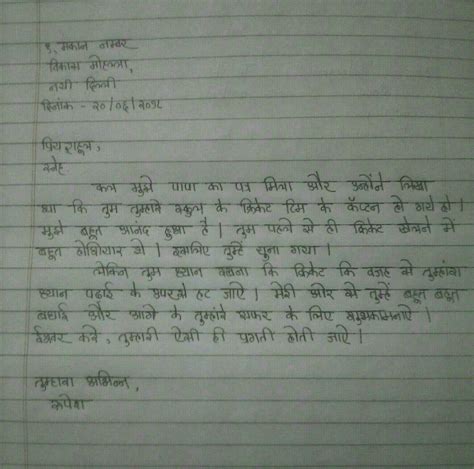 ९, मकान नम्बर
विकास मोहल्ला,
नयी दिल्ली
दिनांक - २०/०६/२०१८
प्रिय राहूल,
स्नेह
कल मुझे पापा का पत्र मिला और उन्होंने लिखा
था कि तुम तुम्हारे स्कुल के क्रिकेट टिम के कॅप्टन हो गये हो।
मुझे बहूत आनंद हुआ है। तुम पहले से ही क्रिकेट खेलने में
बहूत होशियार थे। इसलिए तुम्हें चूना गया।
लेकिन तुम ध्यान रखना कि क्रिकेट कि वजह से तुम्हारा
ध्यान पढ़ाई के उपर से हट जाए। मेरी ओर से तुम्हें बहूत बहूत
बधाई और आगे के तुम्हारे सफर के लिए शुभकामनाएँ।
ईश्वर करे, तुम्हारी ऐसी ही प्रगती होती जाए।
तुम्हारा अभिन्न,
रूपेश